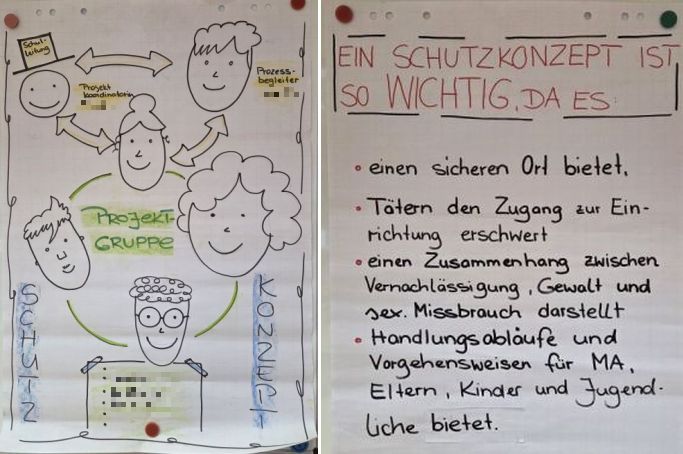 Schul-
leitung
Projekt
koordinatorin
Prozess-
begleiter
PROJEKT-
GRUPPE
SCHUTZ
KONZEPT
EIN SCHUTZKONZEPT IST
SO WICHTIG, DA ES:
• einen sicheren Ort bietet,
• Tätern den Zugang zur Ein-
richtung erschwert
• einen Zusammenhang zwischen
Vernachlässigung, Gewalt und
sex. Missbrauch darstellt
• Handlungsabläufe und
Vorgehensweisen für MA,
Eltern, Kinder und Jugend-
liche bietet.